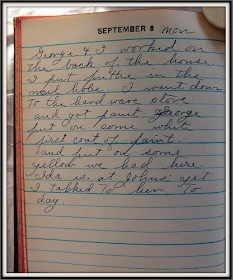 SEPTEMBER 8 Mon
George & I worked on
the back of the house.
I put puttie in the
nail holes. I went down
to the hardware store
and got paint George
put on some white
first coat of paint.
I and put on some
yellow we had here.
Ida is at Johns yet
I talked to her to
day.